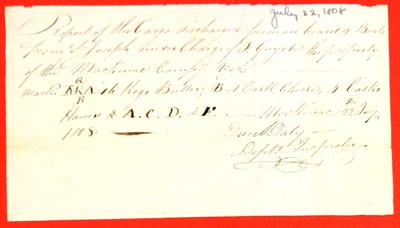 July 22, 1808
Report of the Cargo discharged from on board 2 Boats
from St. Joseph under Charge of J. Guyot the property
of the Mackinac Company Viz
A
marks RKA 16 Kegs Butter, B 1 Cask Cheese, 4 Casks
R
Hams A.C.D. & F. Mackinac 22 July
1808
Danl Daly
Depty Inspector